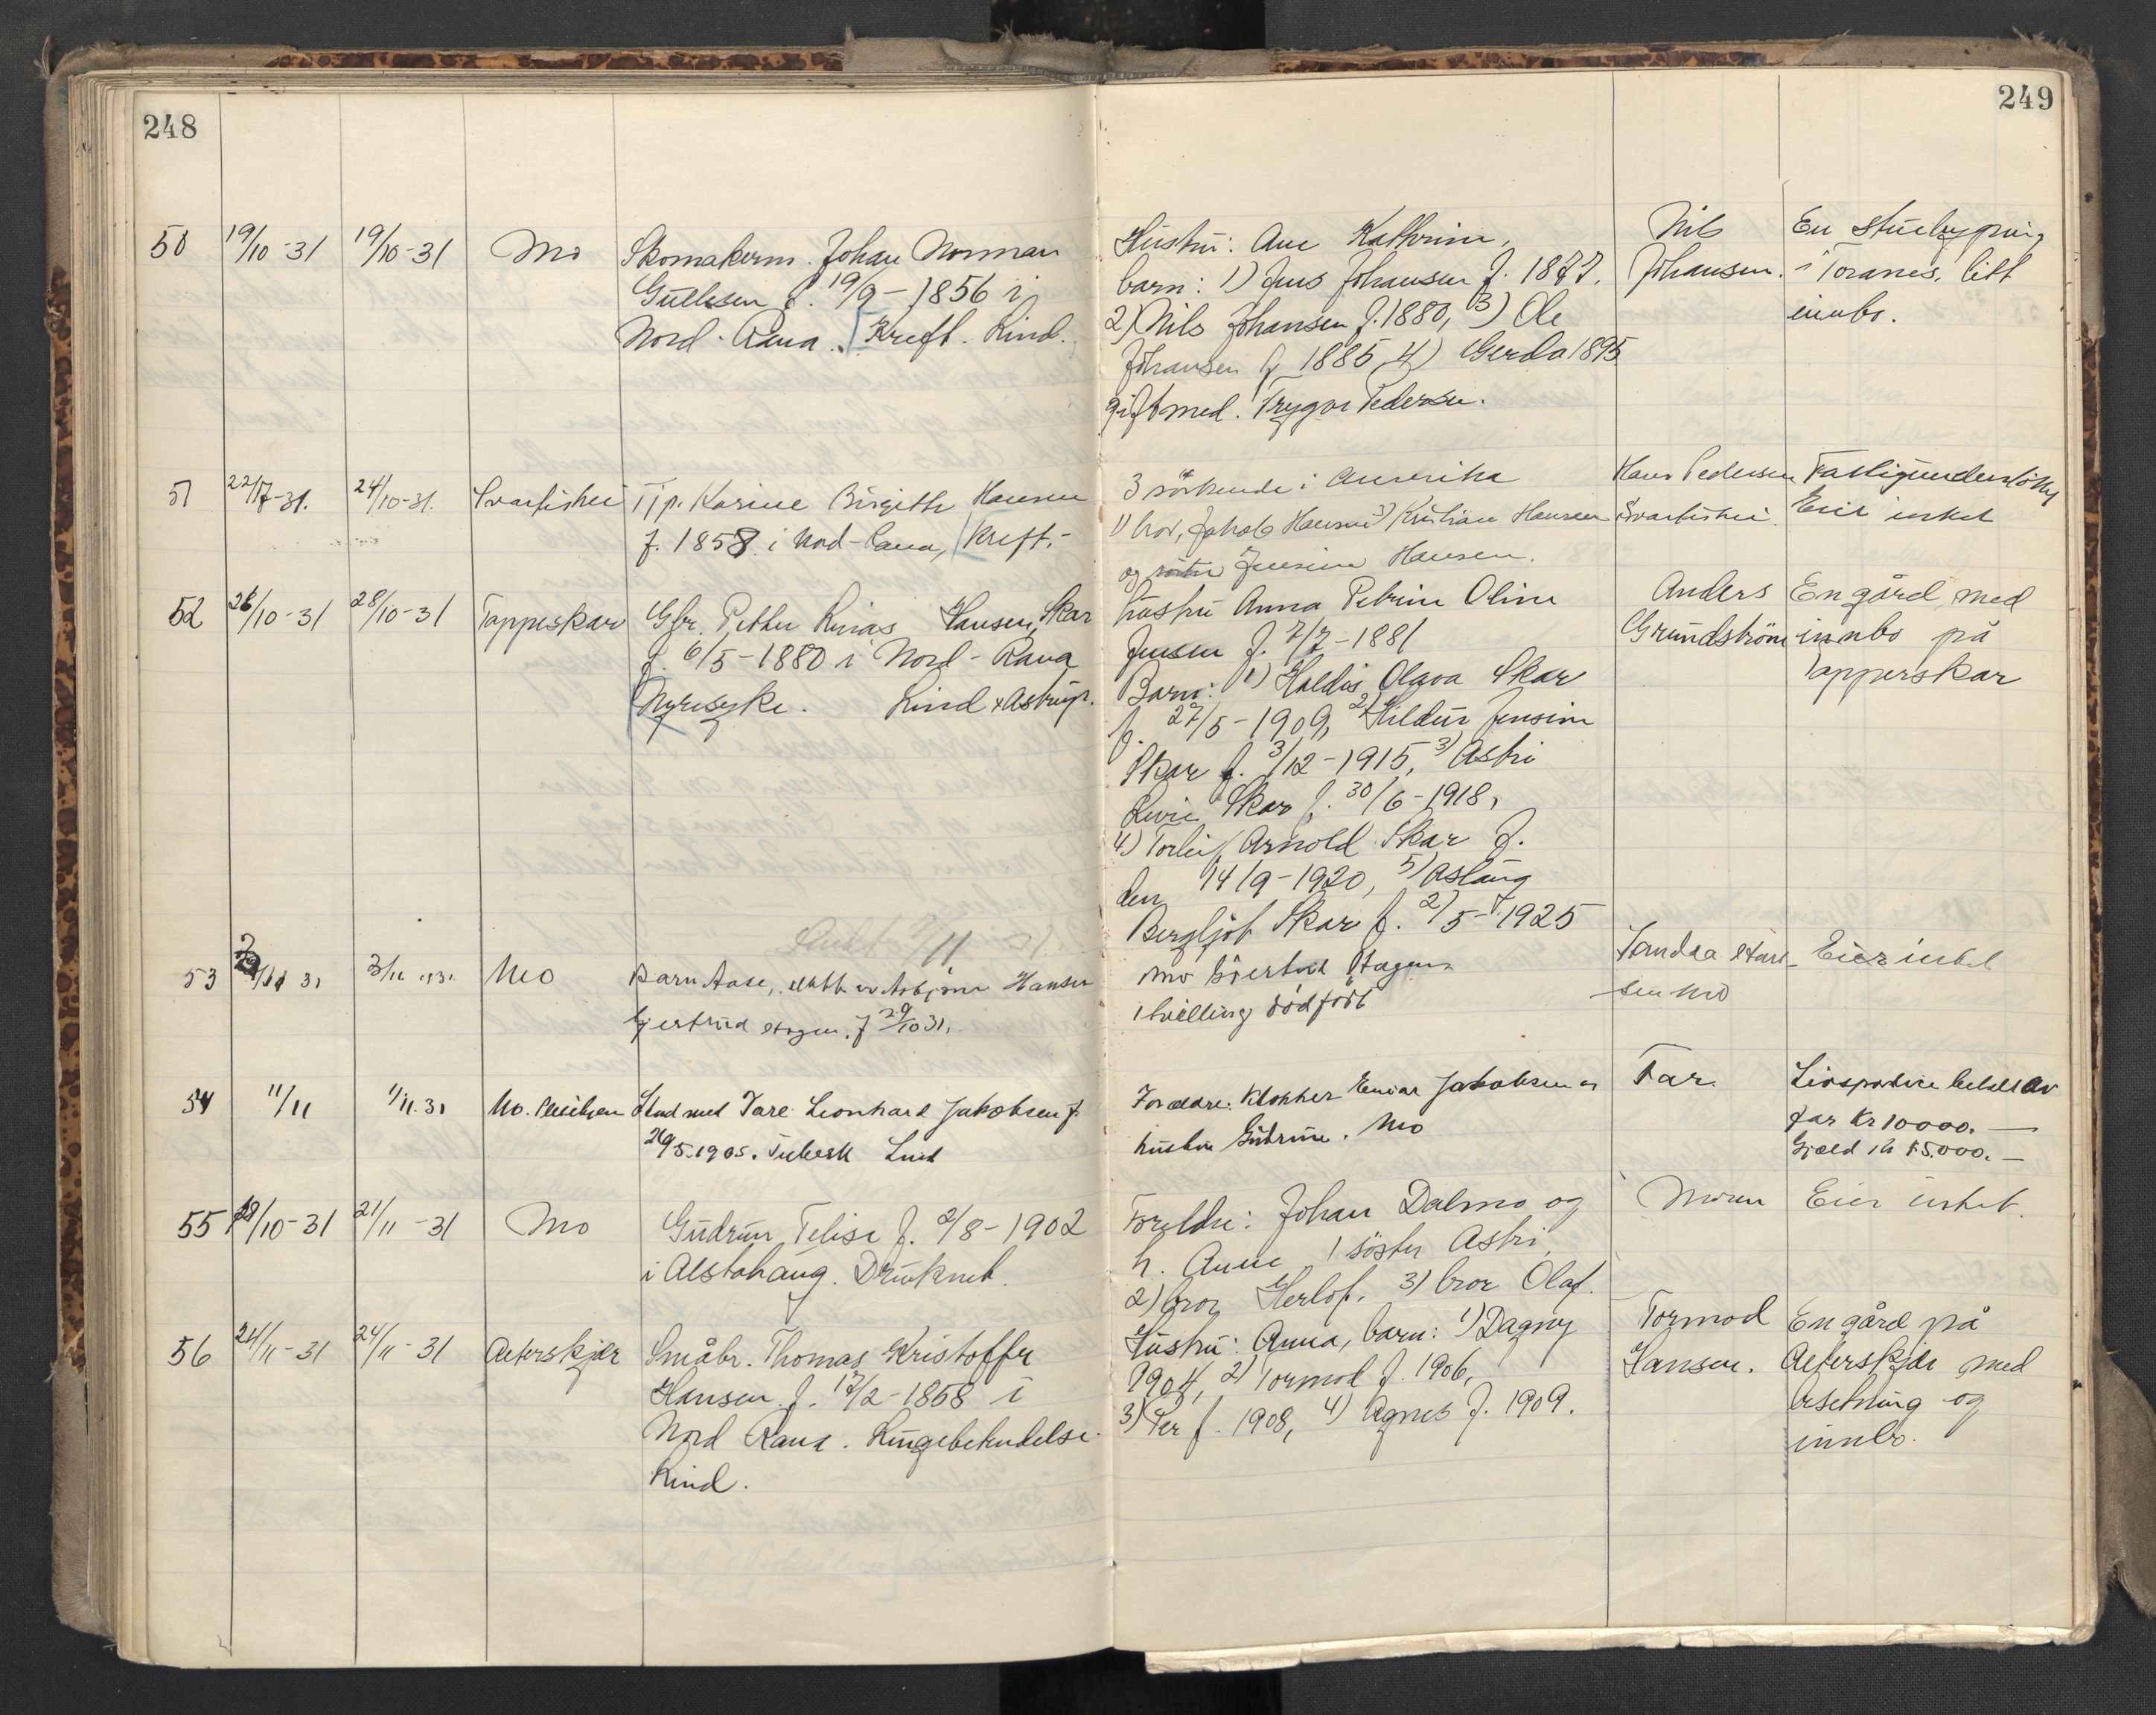 248
249
50 19/10-31 19/10-31 Mo Skomakerm. Johan Norman
Gullesen f. 19/9-1856 i
Nord-Rana. Kreft. Lind.
Hustru: Ane Kathrine,
barn: 1) Jens Johansen f. 1877.
2) Nils Johansen f. 1880, 3) Ole
Johansen f 1885, 4) Gerda 1895
gift med. Trygve Pedersen.
Nils
Johansen.
En stuebygning
i Toranes. litt
innbo.
51 22/7-31. 24/10-31. Svartishei Tjp. Karine Birgitte Hansen
f. 1858 i Nord-Rana, Kreft.-
3 søskende i Amerika
1) bror, Jakob Hansen 3) Kristian Hansen
og søster Jensine Hansen.
Hans Pedersen
Svartishei.
Fattigunderstøttet
Eier intet
52 26/10-31 28/10-31 Tapperskar Gbr. Petter Linas Hansen, Skar
f. 6/5-1880 i Nord-Rana
Nyresyke. Lind + Astrup.
hustru Anna Petrine Oline
Jensen f. 7/7-1881
Barn: 1) Haldis Olava Skar
f. 27/5-1909, 2) Hildur Jensine
Skar f. 3/12-1915, 3) Astri
Livie Skar f. 30/6-1918,
4) Torleif Arnold Skar f.
den 14/9-1920, 5) Aslaug
Bergljot Skar f. 2/5-1925
Anders
Grundstrøm
En gård med
innbo på
Tapperskar
53 31 3/11 1931 Mo Barn Aase, datt. av Asbjørn Hansen
Gjertrud Hagen. f 29/10 31.
Mor Gjertrud Hagen
1 tvilling dødfødt
Hansen Mo
Eier intet
54 11/11 1/11.31 Mo. Stud med Tore Leonhard Jakobsen f.
26/5.1905. Tuberk Lind
Foreldre: Klokker Einar Jakobsen og
hustru Gudrun. Mo
Far.
Livspolice betalt av
far Kr 10000.—
Gjæld Kr 15.000.—
55 18/10-31 21/11-31 Mo Gudrun Telise f. 2/8-1902
i Alstahaug. Druknet.
Foreldre: Johan Dalmo og
h. Anne 1 søster Astri,
2) bror Herlof, 3) bror Olaf.
Moren
Eier intet.
56 24/11-31 24/11-31 Aeterskjær Småbr. Thomas Kristoffer
Hansen f. 17/2-1858 i
Nord Rana. Lungebetendelse.
Lind.
Hustru: Anna, barn: 1) Dagny
1904, 2) Tormod f. 1906,
3) Per f. 1908, 4) Agnes f. 1909.
Tormod
Hansen.
En gård på
Aeterskjær med
besetning og
innbo.